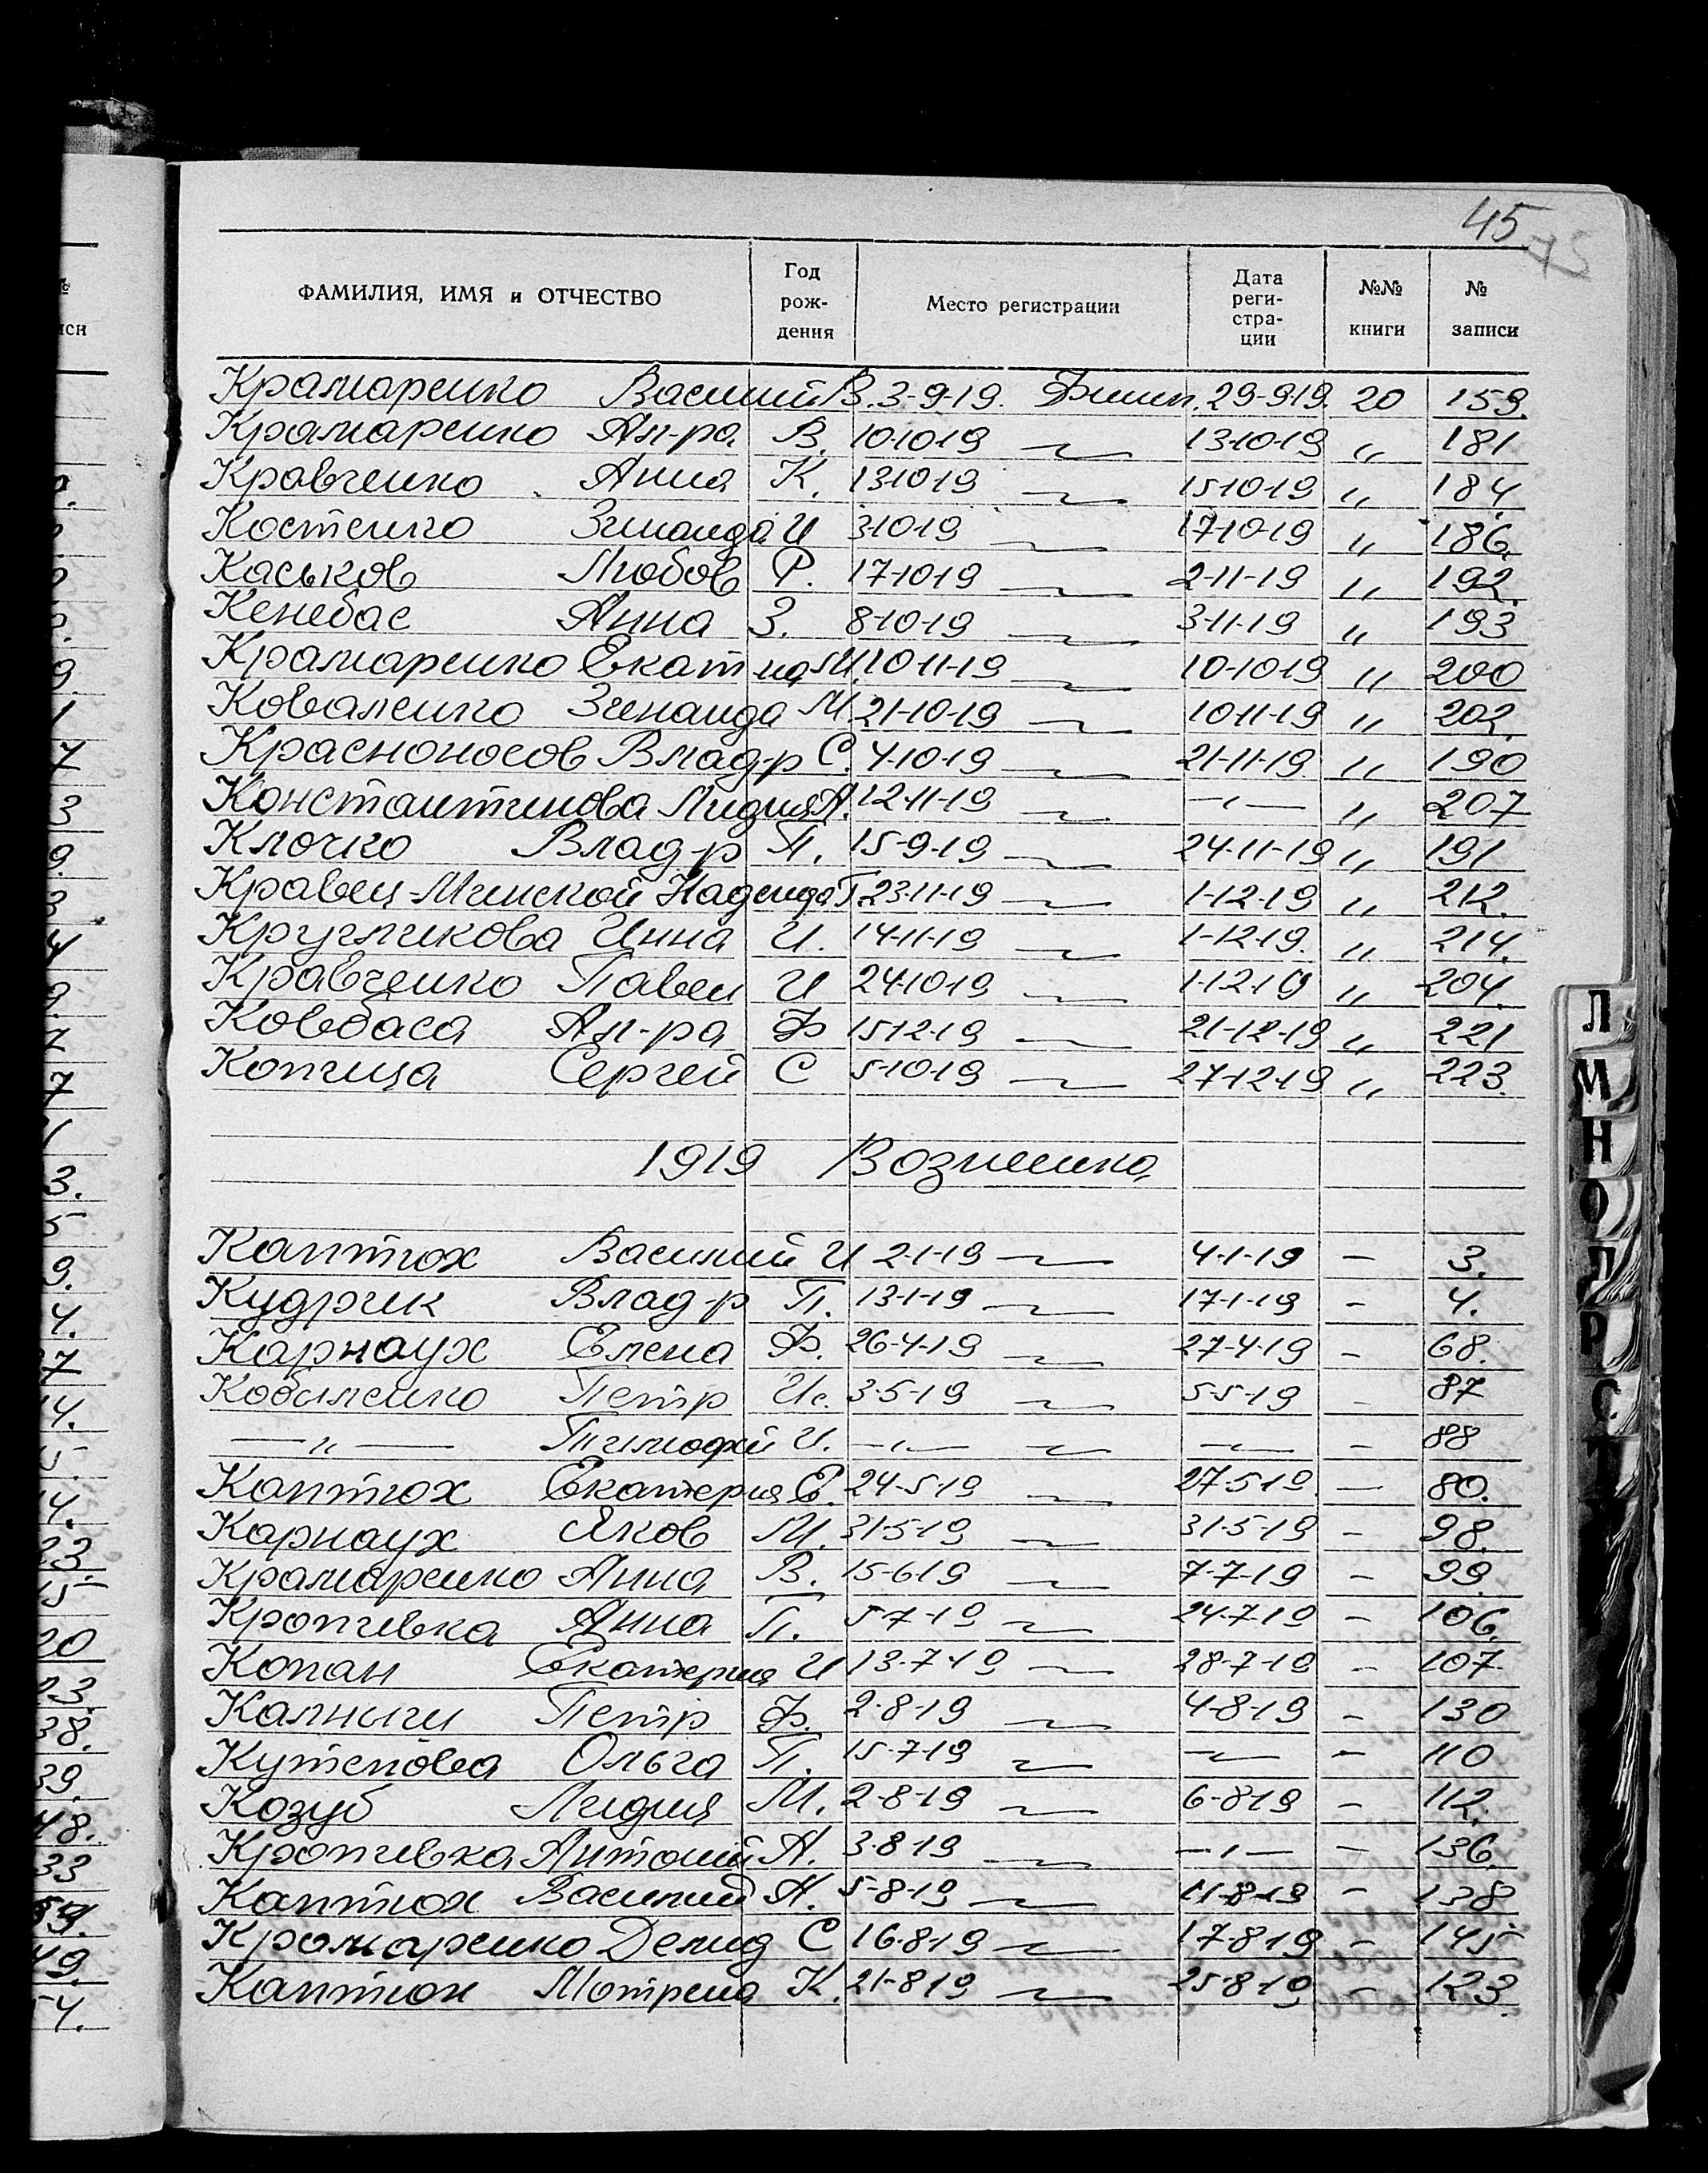 45
75
ФАМИЛИЯ, ИМЯ и ОТЧЕСТВО Год рож- дения Место регистрации Дата реги- стра- ции №№ книги № записи
Крамаренко Василий В. 3-9-19. 29-9-19. 20 159.
Крамаренко Ал-ра В. 10-10-19 13-10-19 " 181
Кравченко Анна К. 13-10-19 15-10-19 " 184.
Костенко Зинаида И 3-10-19 17-10-19 " 186.
Каськов Любов Р. 17-10-19 2-11-19 " 192.
Кенебас Анна З. 8-10-19 3-11-19 " 193
Крамаренко Екат-на М. 10-11-19 10-10-19 " 200
Коваленко Зинаида М. 21-10-19 10-11-19 " 202.
Красноносов Влад-р С. 4-10-19 21-11-19 " 190
Константинова Лидия А. 12-11-19 —"— " 207
Клочко Влад-р П. 15-9-19 24-11-19 " 191
Кравец-Минской Надежда Г. 23-11-19 1-12-19 " 212.
Кругликова Инна И. 14-11-19 1-12-19. " 214.
Кравченко Павел И 24-10-19 1-12-19 " 204.
Ковбаса Ал-ра Ф 15-12-19 21-12-19 " 221
Копица Сергей С 5-10-19 27-12-19 " 223.
1919
Каптюх Василий И 2-1-19 4-1-19 — 3.
Кудрик Влад-р П. 13-1-19 17-1-19 – 4.
Карнаух Елена Ф. 26-4-19 27-4-19 – 68.
Петр 3-5-19 5-5-19 – 87
—"— Тимофей И. —"— —"— – 88
Каптюх Екатерина Е. 24-5-19 27-5-19. — 80.
Карнаух Яков М. 31-5-19 31-5-19 – 98.
Крамаренко Анна В. 15-6-19 7-7-19 – 99.
Кропивка Анна П. 5-7-19 24-7-19 – 106.
Копан Екатерина И 13-7-19 28-7-19 – 107.
Петр Ф. 2-8-19 4-8-19 – 130
Кутепова Ольга П. 15-7-19 —"— – 110
Козуб Лидия М. 2-8-19 6-8-19 – 112.
Кропивка Антоний А. 3-8-19 —"— – 136.
Каптюх Василий А. 5-8-19 11-8-19 – 138
Крамаренко Демид С 16-8-19 17-8-19 – 145
Каптюх Мотрена К. 21-8-19 25-8-19 – 123.
Л
М
Н
О
П
Р
С
Т